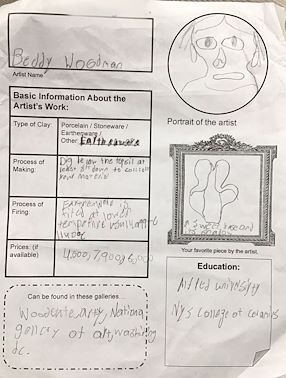 Beddy Woodman
Artist Name
Basic Information About the
Artist's Work:
Type of Clay:
Porcelain / Stoneware /
Earthenware /
Other: Earthenware
Process of
Making:
Dig below the topsoil at
least down to collect
hard material
Process of
Firing:
Earthenware is
fired at lower
tempertue
1100°
Prices: (if
available)
Can be found in these galleries...
National
gallery of art, washing
dc.
Portrait of the artist
sweet base and
Your favorite piece by the artist.
Education:
Alfred university
Nys College of ceramics